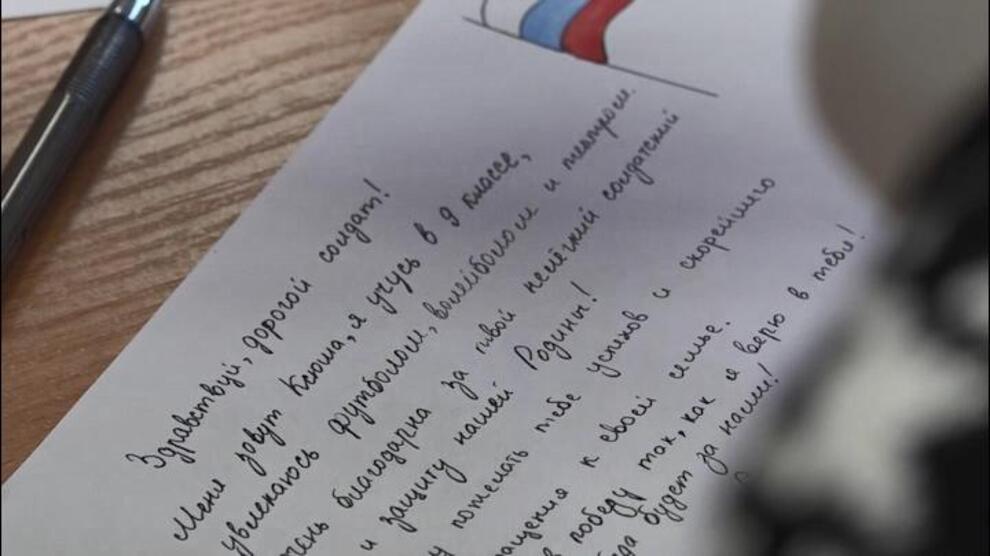 Здравствуй, дорогой солдат!
Меня зовут Ксюша, я учусь в 9 классе,
увлекаюсь футболом, волейболом и театром.
благодарна за твой нелёгкий солдатский
и защиту нашей Родины!
пожелать тебе успехов и скорейшего
к своей семье.
в победу так, как я верю в тебя!
будет за нами!